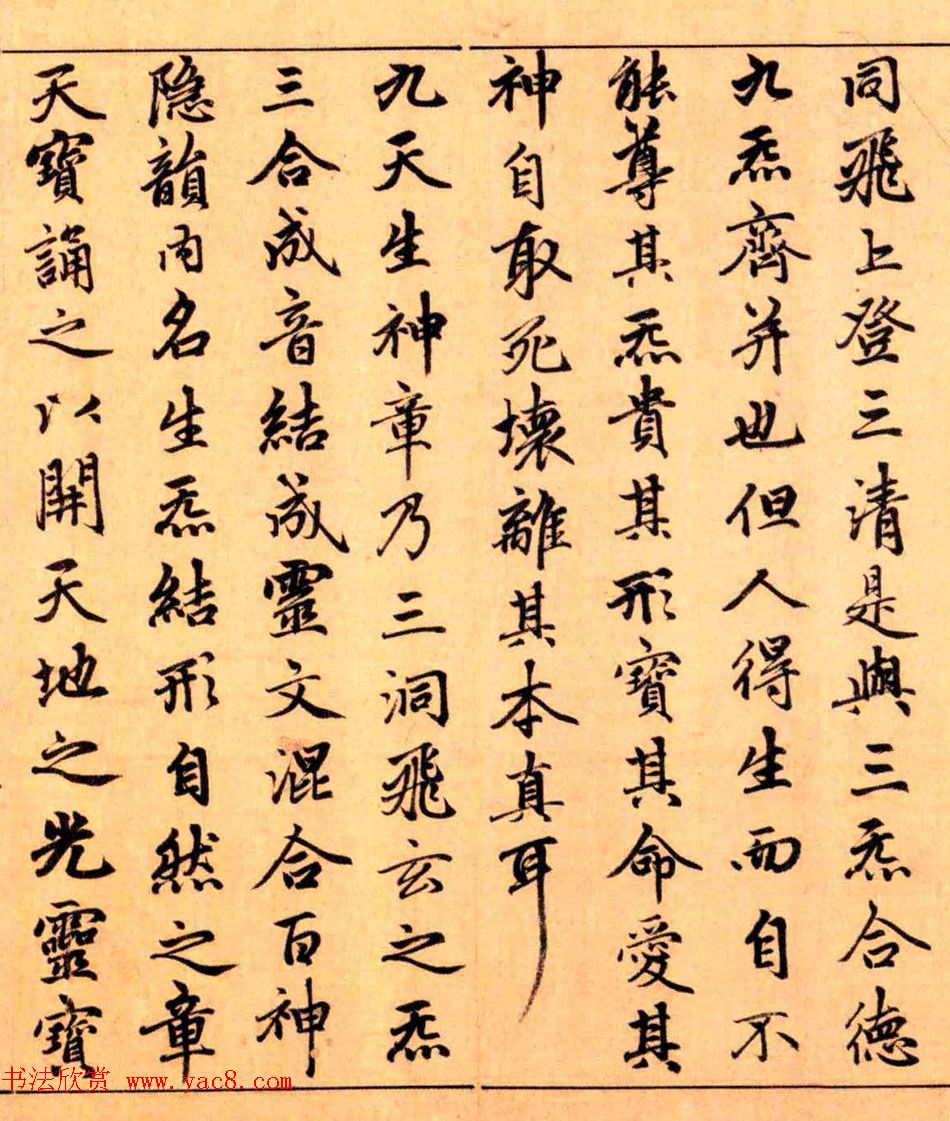 同飛上登三清是與三炁合德
九炁齊并也但人得生而自不
能尊其炁貴其形寶其命愛其
神自取死壞離其本真耳
九天生神章乃三洞飛玄之炁
三合成音結成靈文混合百神
隐韻内名生炁結形自然之章
天寶誦之以開天地之光靈寶
书法欣赏 www.yac8.com